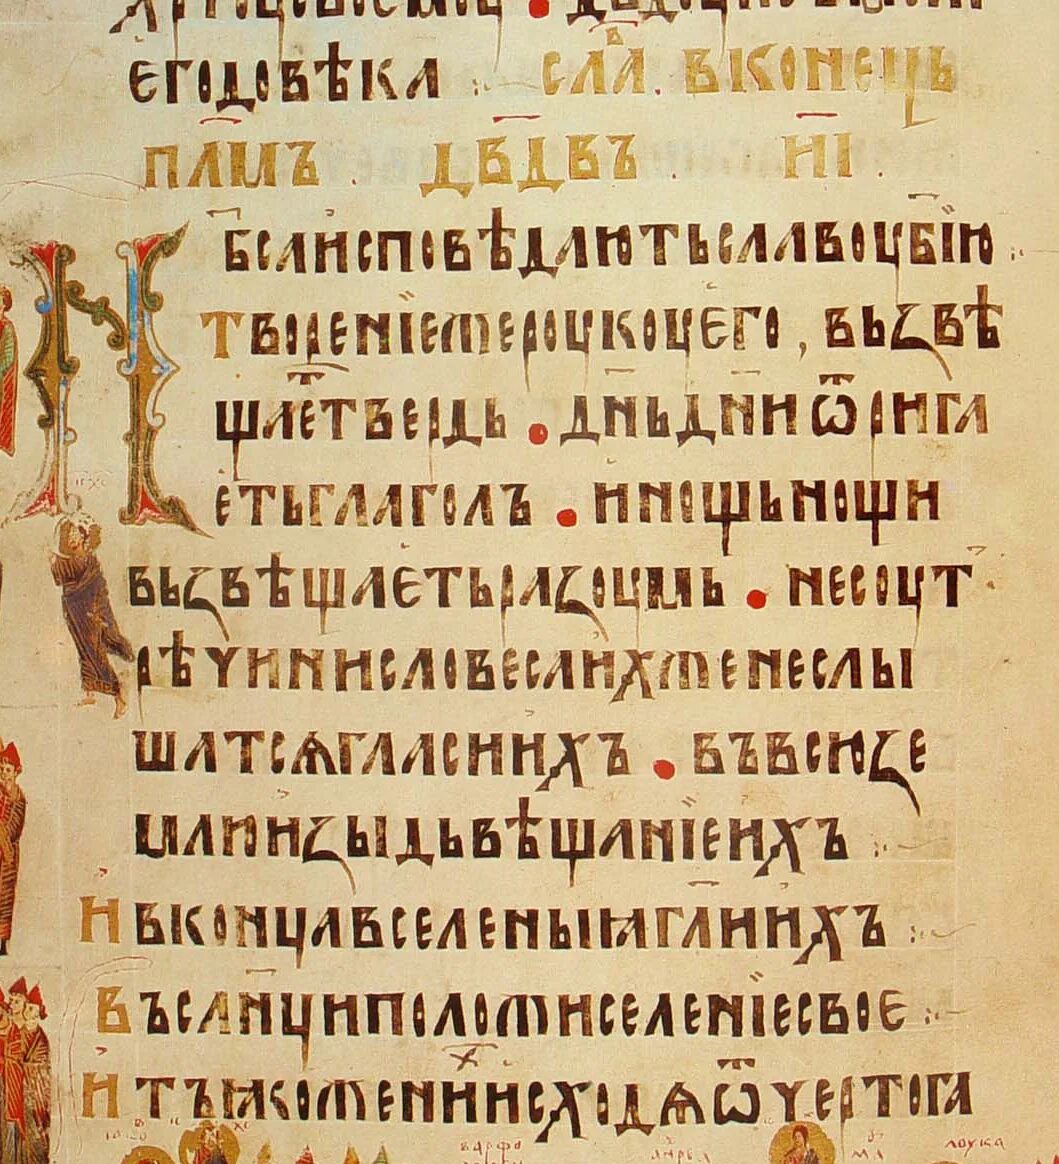 его до вѣка ⁘ сла҃ в҇ . в конець
п҃лмъ . дв҃двъ . н҃і .
Нб҃са исповѣдают ь славоу бж҃їю ⁘
творенїе же роукоу его , възвѣ
щает твердь • дн҃ь дн҃и ѿрига
еть глаголъ • и нощь нощи
възвѣщаеть разоумь • не соут
рѣчи ни словеса ихже не слы
шатсѧ гласи ихъ • въ всю зе
млю изыдь вѣщанїе ихъ ⁘
и в конца вселеныꙗ гл҃и ихъ ⁘
въ сл҃нци положи селенїе свое ⁘
и тъ ꙗко жених исходѧ ѿ чертога
варфо
лоука